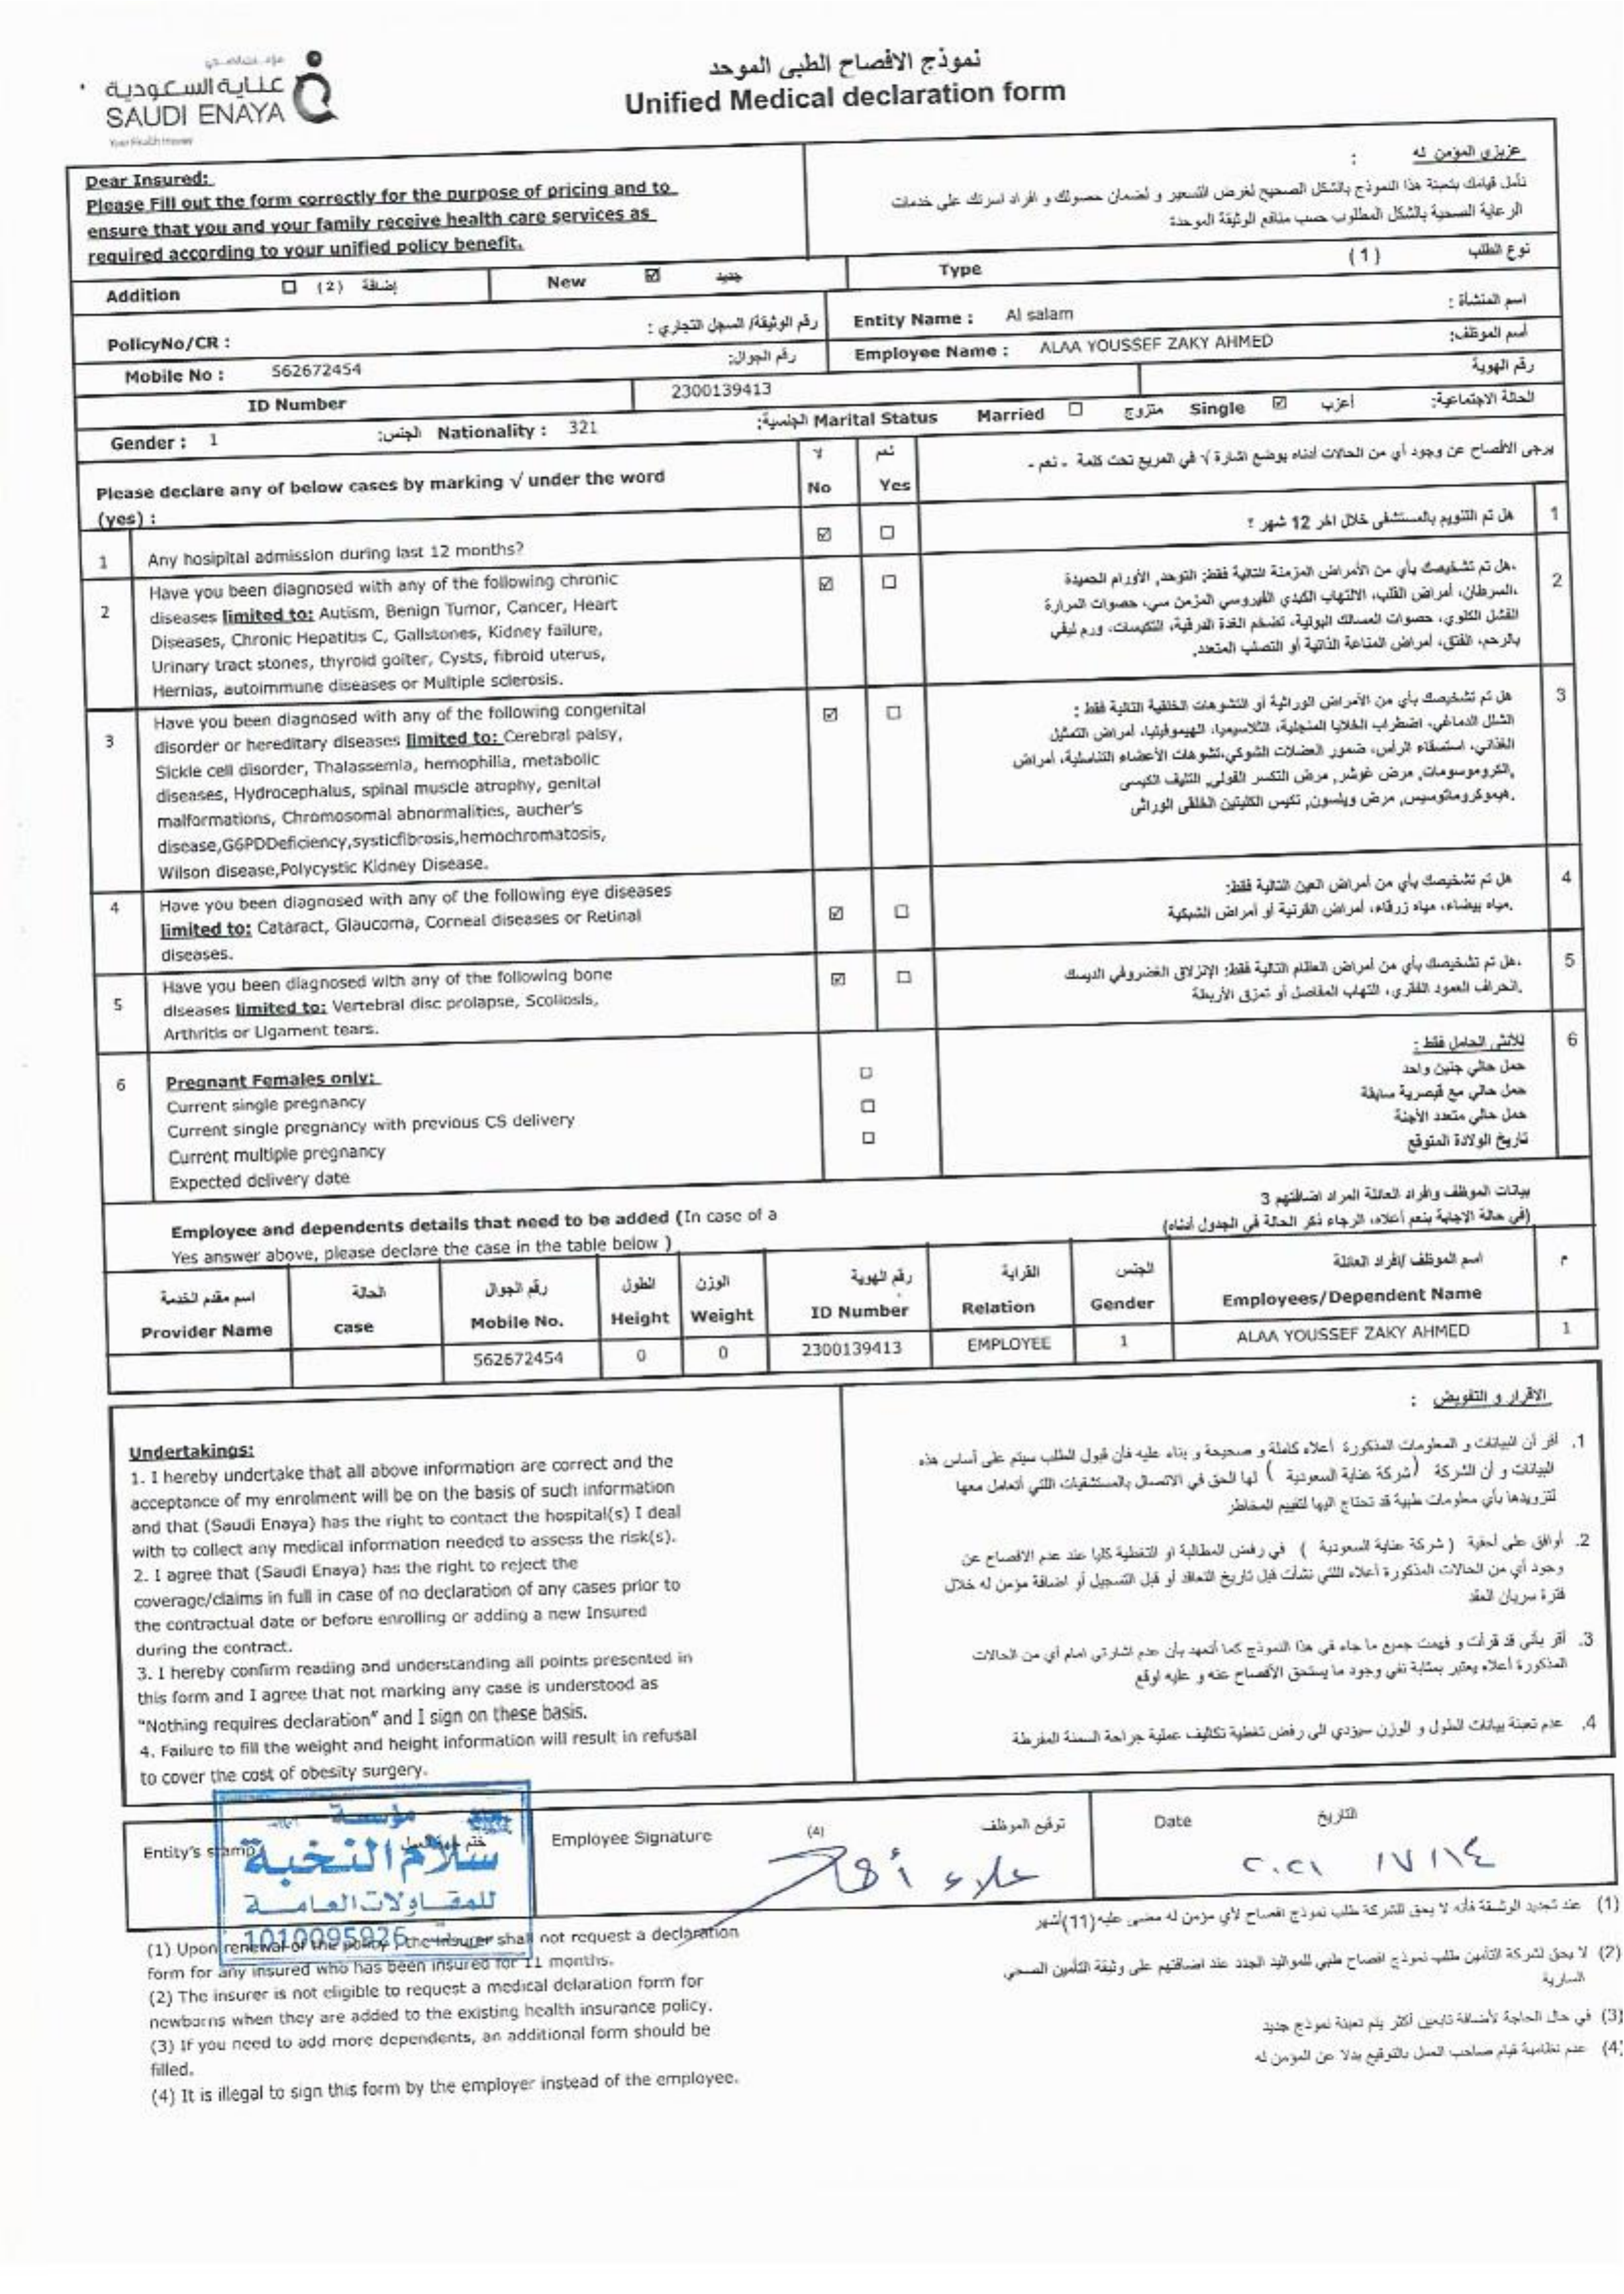 عناية السعودية
SAUDI ENAYA
نموذج الافصاح الطبي الموحد
Unified Medical declaration form
Dear Insured:
Please Fill out the form correctly for the purpose of pricing and to
ensure that you and your family receive health care services as
required according to your unified policy benefit.
عزيزي المؤمن له :
نأمل قيامك بتعبئة هذا النموذج بالشكل الصحيح لغرض التسعير و لضمان حصولك و افراد اسرتك على خدمات
الرعاية الصحية بالشكل المطلوب حسب منافع الوثيقة الموحدة
Addition ☐ (2) إضافة New ☑ جديد Type (1) نوع الطلب
PolicyNo/CR : رقم الوثيقة/ السجل التجاري : Entity Name : Al salam اسم المنشأة :
Mobile No : 562672454 رقم الجوال: Employee Name : ALAA YOUSSEF ZAKY AHMED أسم الموظف:
ID Number 2300139413 رقم الهوية
Gender : 1 الجنس: Nationality : 321 الجنسية: Marital Status Married ☐ متزوج Single ☑ أعزب الحالة الاجتماعية:
Please declare any of below cases by marking √ under the word
(yes) :
لا نعم
No Yes
يرجى الافصاح عن وجود أي من الحالات أدناه بوضع اشارة √ في المربع تحت كلمة - نعم -
1 Any hosipital admission during last 12 months? ☑ ☐ هل تم التنويم بالمستشفى خلال اخر 12 شهر ؟ 1
2 Have you been diagnosed with any of the following chronic
diseases limited to: Autism, Benign Tumor, Cancer, Heart
Diseases, Chronic Hepatitis C, Gallstones, Kidney failure,
Urinary tract stones, thyroid goiter, Cysts, fibroid uterus,
Hernias, autoimmune diseases or Multiple sclerosis.
☑ ☐
هل تم تشخيصك بأي من الأمراض المزمنة التالية فقط: التوحد, الأورام الحميدة 2
السرطان، أمراض القلب، الالتهاب الكبدي الفيروسي المزمن سي، حصوات المرارة،
الفشل الكلوي، حصوات المسالك البولية، تضخم الغدة الدرقية، التكيسات، ورم ليفي
بالرحم، الفتق، أمراض المناعة الذاتية أو التصلب المتعدد.
3 Have you been diagnosed with any of the following congenital
disorder or hereditary diseases limited to: Cerebral palsy,
Sickle cell disorder, Thalassemia, hemophilia, metabolic
diseases, Hydrocephalus, spinal muscle atrophy, genital
malformations, Chromosomal abnormalities, aucher's
disease,G6PDDeficiency,systicfibrosis,hemochromatosis,
Wilson disease,Polycystic Kidney Disease.
☑ ☐
هل تم تشخيصك بأي من الأمراض الوراثية أو التشوهات الخلقية التالية فقط : 3
الشلل الدماغي، اضطراب الخلايا المنجلية، الثلاسيميا، الهيموفيليا، أمراض التمثيل
الغذائي، استسقاء الرأس، ضمور العضلات الشوكي،تشوهات الأعضاء التناسلية، أمراض
الكروموسومات, مرض غوشر, مرض التكسر الفولي, التليف الكيسي,
هيموكروماتوسيس, مرض ويلسون, تكيس الكليتين الخلقي الوراثي.
4 Have you been diagnosed with any of the following eye diseases
limited to: Cataract, Glaucoma, Corneal diseases or Retinal
diseases.
☑ ☐
هل تم تشخيصك بأي من أمراض العين التالية فقط: 4
مياه بيضاء، مياه زرقاء، أمراض القرنية أو أمراض الشبكية.
5 Have you been diagnosed with any of the following bone
diseases limited to: Vertebral disc prolapse, Scoliosis,
Arthritis or Ligament tears.
☑ ☐
هل تم تشخيصك بأي من أمراض العظام التالية فقط: الإنزلاق الغضروفي الديسك، 5
انحراف العمود الفقري، التهاب المفاصل أو تمزق الأربطة.
6 Pregnant Females only:
Current single pregnancy
Current single pregnancy with previous CS delivery
Current multiple pregnancy
Expected delivery date
☐
☐
☐
للأنثى الحامل فقط : 6
حمل حالي جنين واحد
حمل حالي مع قيصرية سابقة
حمل حالي متعدد الأجنة
تاريخ الولادة المتوقع
Employee and dependents details that need to be added (In case of a
Yes answer above, please declare the case in the table below )
بيانات الموظف وافراد العائلة المراد اضافتهم 3
(في حالة الإجابة بنعم أعلاه، الرجاء ذكر الحالة في الجدول أدناه)
اسم مقدم الخدمة الحالة رقم الجوال الطول الوزن رقم الهوية القرابة الجنس اسم الموظف /افراد العائلة م
Provider Name case Mobile No. Height Weight ID Number Relation Gender Employees/Dependent Name
562672454 0 0 2300139413 EMPLOYEE 1 ALAA YOUSSEF ZAKY AHMED 1
Undertakings:
1. I hereby undertake that all above information are correct and the
acceptance of my enrolment will be on the basis of such information
and that (Saudi Enaya) has the right to contact the hospital(s) I deal
with to collect any medical information needed to assess the risk(s).
2. I agree that (Saudi Enaya) has the right to reject the
coverage/claims in full in case of no declaration of any cases prior to
the contractual date or before enrolling or adding a new Insured
during the contract.
3. I hereby confirm reading and understanding all points presented in
this form and I agree that not marking any case is understood as
"Nothing requires declaration" and I sign on these basis.
4. Failure to fill the weight and height information will result in refusal
to cover the cost of obesity surgery.
الاقرار و التفويض :
1. أقر أن البيانات و المعلومات المذكورة أعلاه كاملة و صحيحة و بناء عليه فأن قبول الطلب سيتم على أساس هذه
البيانات و أن الشركة (شركة عناية السعودية ) لها الحق في الاتصال بالمستشفيات اللتي أتعامل معها
لتزويدها بأي معلومات طبية قد تحتاج اليها لتقييم المخاطر
2. أوافق على أحقية ( شركة عناية السعودية ) في رفض المطالبة او التغطية كليا عند عدم الافصاح عن
وجود أي من الحالات المذكورة أعلاه اللتي نشأت قبل تاريخ التعاقد أو قبل التسجيل أو اضافة مؤمن له خلال
فترة سريان العقد
3. أقر بأني قد قرأت و فهمت جميع ما جاء في هذا النموذج كما أتعهد بأن عدم اشارتي امام أي من الحالات
المذكورة أعلاه يعتبر بمثابة نفي وجود ما يستحق الأفصاح عنه و عليه اوقع
4. عدم تعبئة بيانات الطول و الوزن سيؤدي الى رفض تغطية تكاليف عملية جراحة السمنة المفرطة
Entity's stamp
مؤسسة
سلام النخبة
للمقاولات العامة
1010095926
Employee Signature (4) توقيع الموظف
علاء أ
Date التاريخ
٢٠٢١ ١٧١١٤
(1) Upon renewal of the policy , the insurer shall not request a declaration
form for any insured who has been insured for 11 months.
(2) The insurer is not eligible to request a medical delaration form for
newborns when they are added to the existing health insurance policy.
(3) If you need to add more dependents, an additional form should be
filled.
(4) It is illegal to sign this form by the employer instead of the employee.
(1) عند تجديد الوثيقة فأنه لا يحق للشركة طلب نموذج افصاح لأي مؤمن له مضى عليه(11)أشهر
(2) لا يحق لشركة التأمين طلب نموذج افصاح طبي للمواليد الجدد عند اضافتهم على وثيقة التأمين الصحي
السارية
(3) في حال الحاجة لأضافة تابعين أكثر يتم تعبئة نموذج جديد
(4) عدم نظامية قيام صاحب العمل بالتوقيع بدلا عن المؤمن له